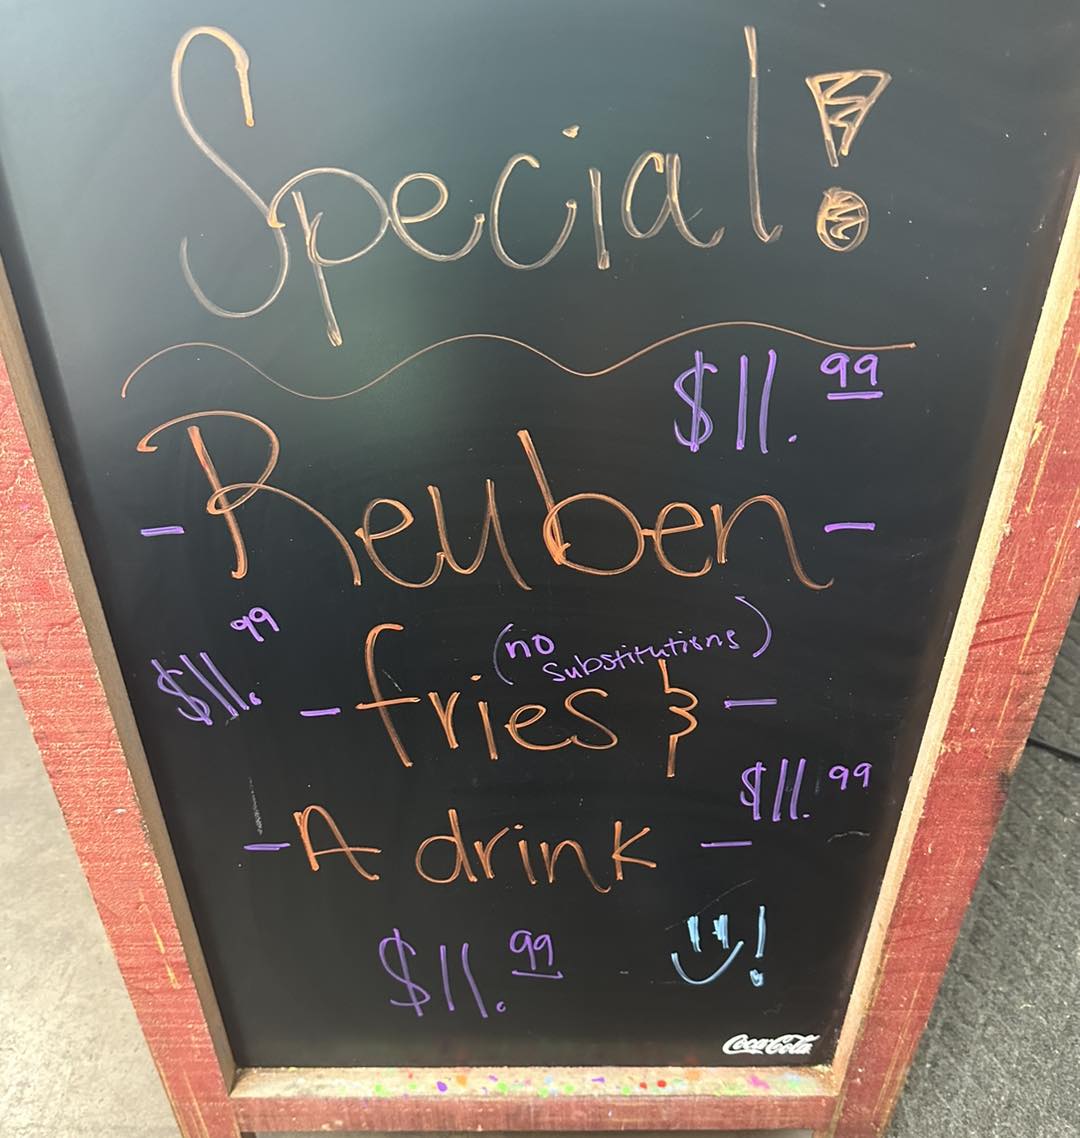 Special!
$11.99
- Reuben -
$11.99
(no substitutions)
- fries & -
$11.99
- A drink -
$11.99 !
Coca-Cola